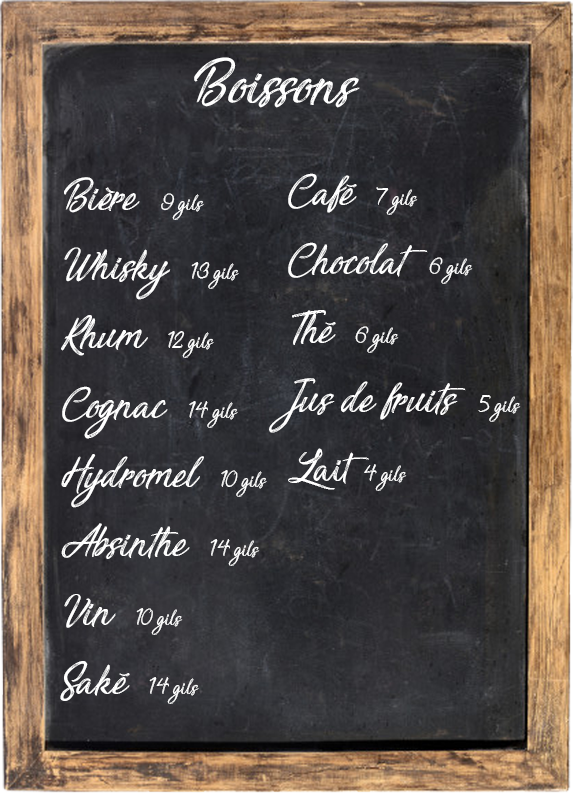 Boissons
Bière 9 gils
Whisky 13 gils
Rhum 12 gils
Cognac 14 gils
Hydromel 10 gils
Absinthe 14 gils
Vin 10 gils
Saké 14 gils
Café 7 gils
Chocolat 6 gils
Thé 6 gils
Jus de fruits 5 gils
Lait 4 gils